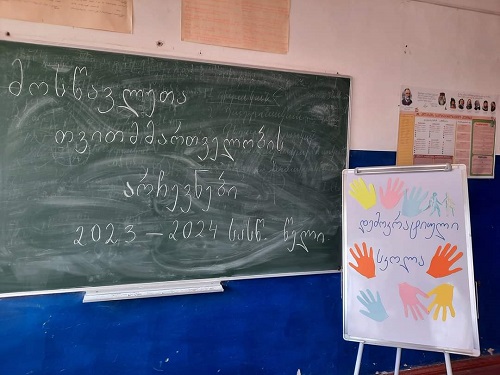 მოსწავლეთა
თვითმმართველობის
არჩევნები
2023 – 2024 სასწ. წელი
დემოკრატიული
სკოლა